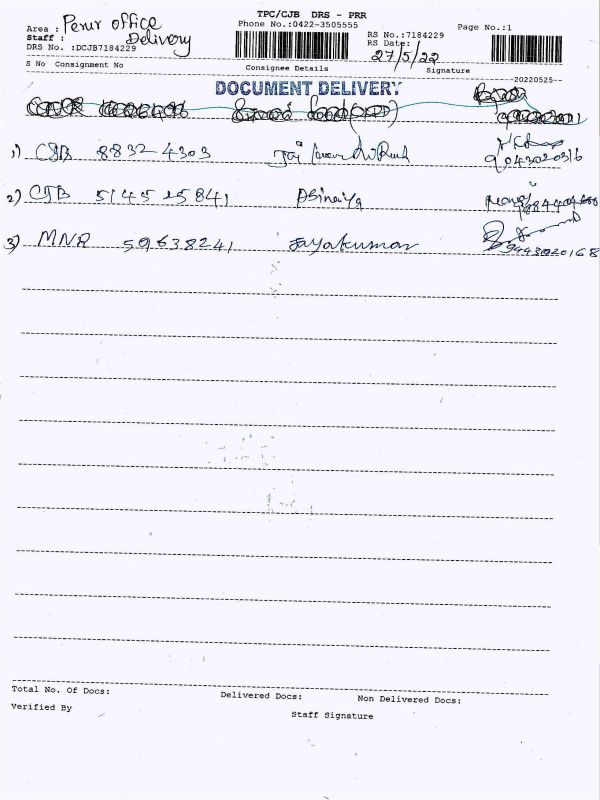 TPC/CJB DRS - PRR
Area : Perur office Phone No.:0422-3505555 RS No.:7184229 Page No.:1
Staff : Delivery RS Date: 27/5/22
DRS No. :DCJB7184229
S No Consignment No Consignee Details Signature
--20220525--
DOCUMENT DELIVERY
1) CJB 88324303 9043020316
2) CJB 514525841 Abinaya
3) MNR 59638241 Jayakumar 9443020168
Total No. Of Docs: Delivered Docs: Non Delivered Docs:
Verified By Staff Signature